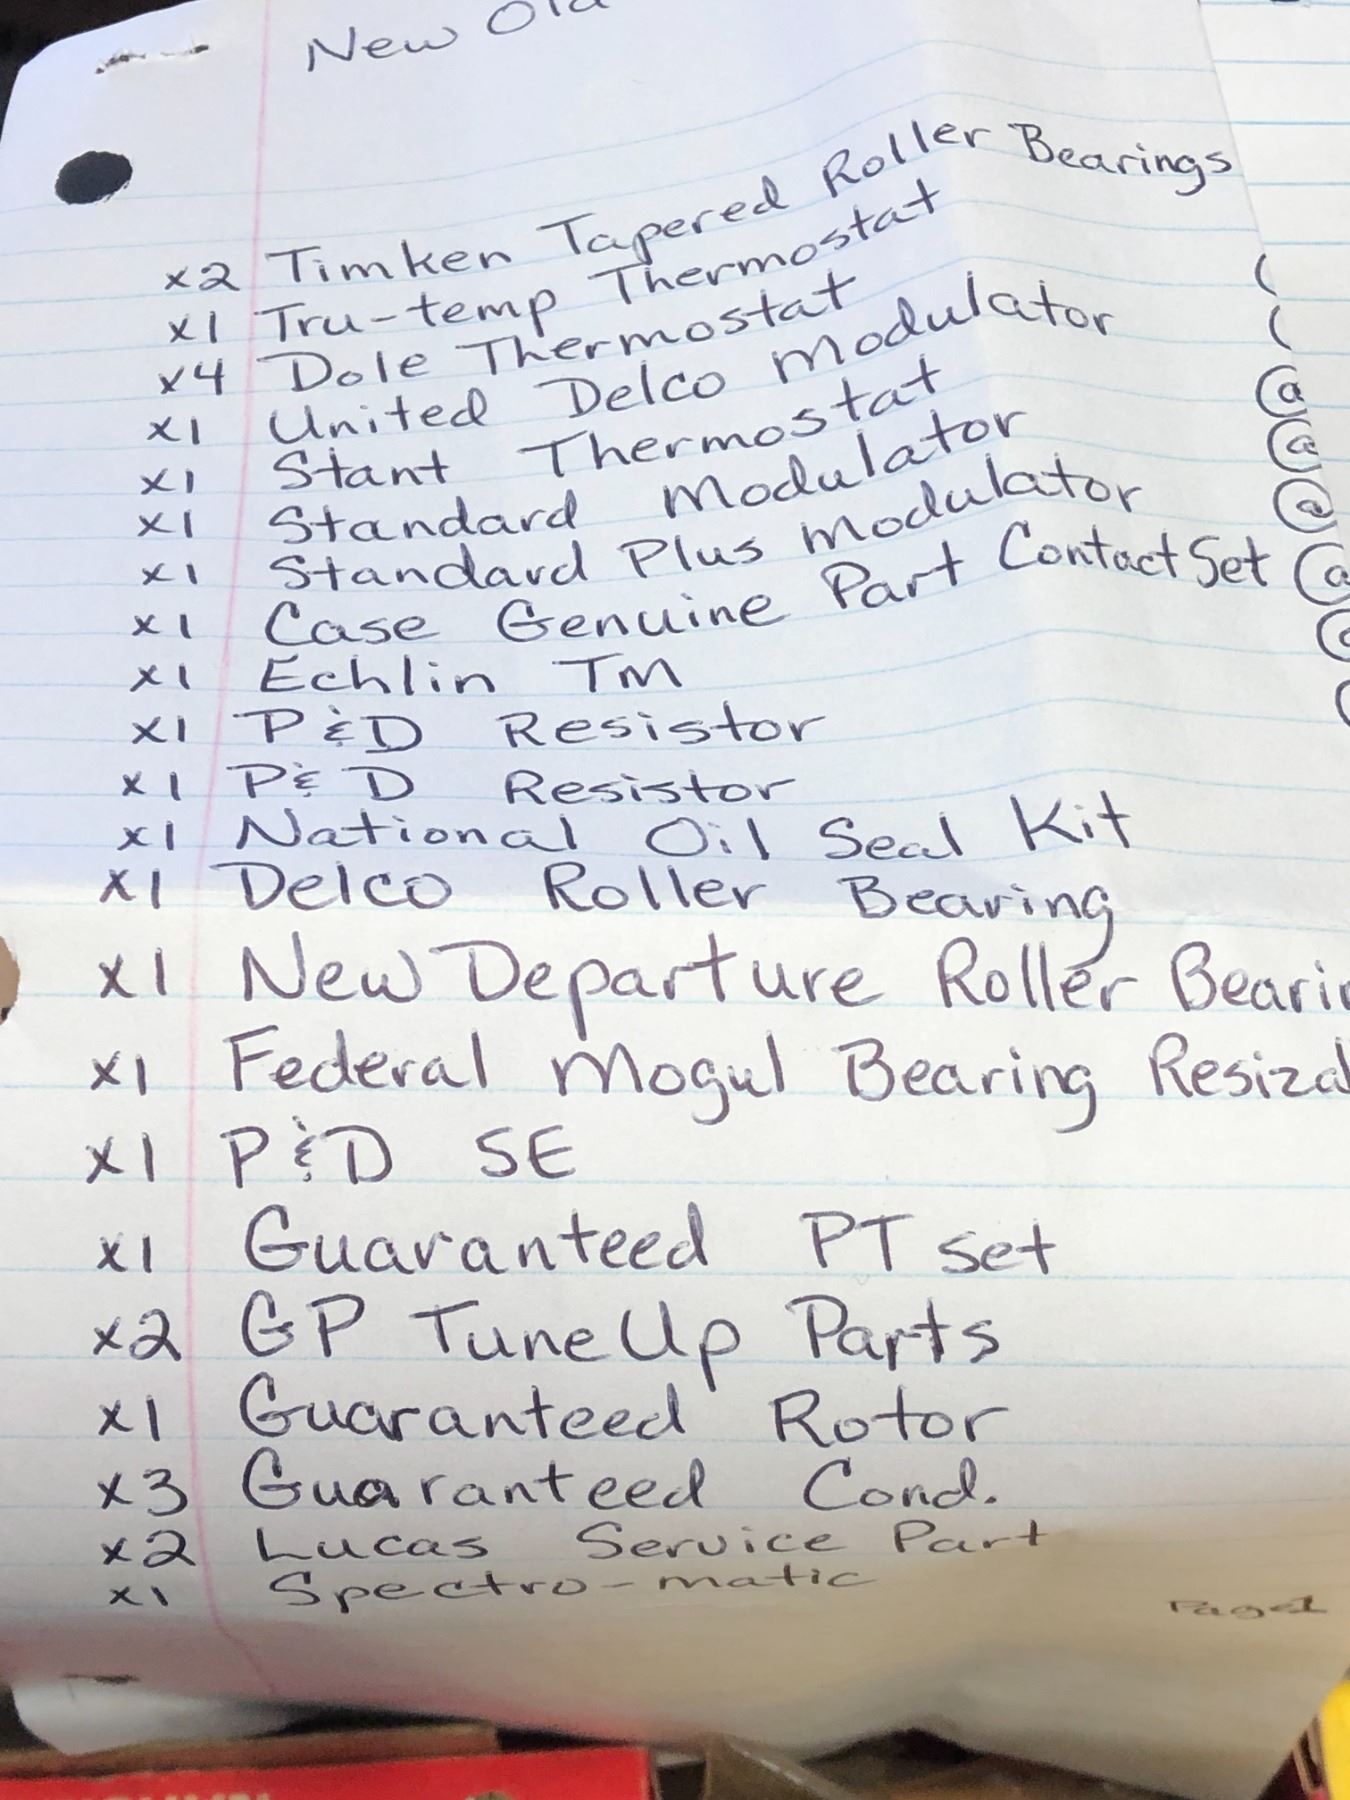 New Old
x2 Timken Tapered Roller Bearings
x1 Tru-temp Thermostat
x4 Dole Thermostat
x1 United Delco Modulator
x1 Stant Thermostat
x1 Standard Modulator
x1 Standard Plus Modulator
x1 Case Genuine Part Contact Set
x1 Echlin TM
x1 P&D Resistor
x1 P&D Resistor
x1 National Oil Seal Kit
x1 Delco Roller Bearing
x1 New Departure Roller Bearin
x1 Federal Mogul Bearing
x1 P&D SE
x1 Guaranteed PT set
x2 GP TuneUp Parts
x1 Guaranteed Rotor
x3 Guaranteed Cond.
x2 Lucas Service Part
x1 Spectro-matic
Page 1